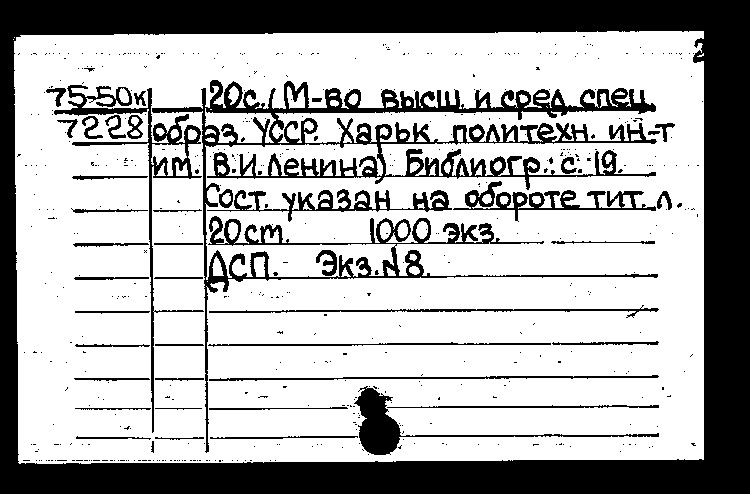 2
75-50к 20с. (М-во высш. и сред. спец.
7228 образ. УССР. Харьк. политехн. ин-т
им. В.И.Ленина) Библиогр.: с. 19.
Сост. указан на обороте тит. л.
20ст. 1000 экз.
ДСП. Экз.№8.